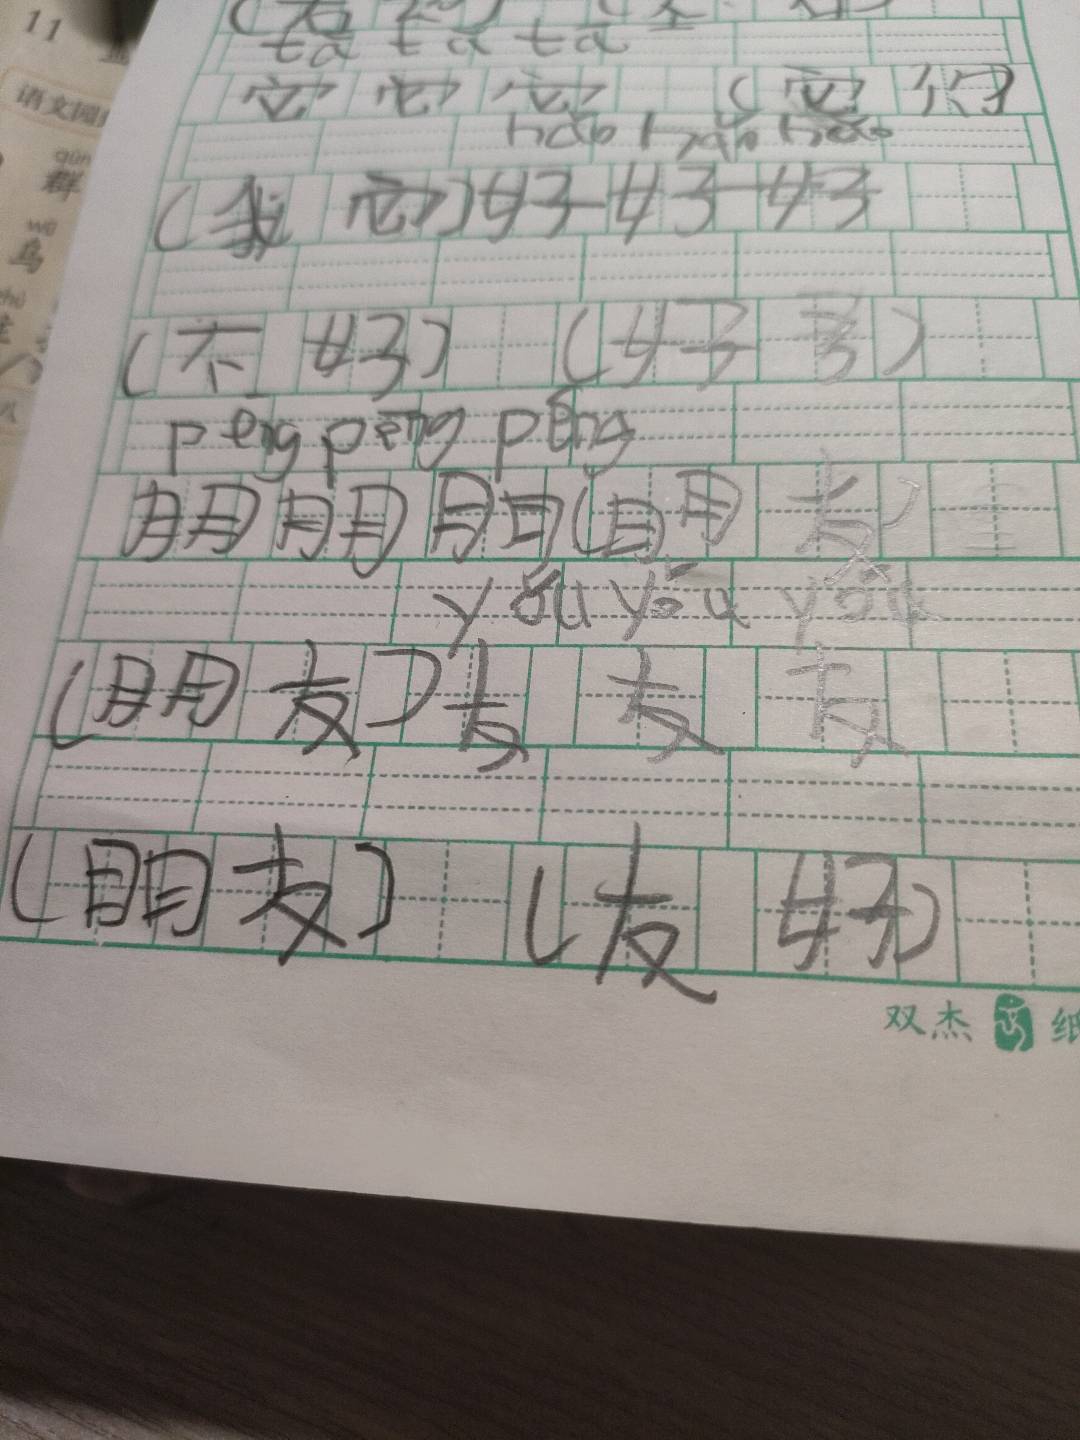 11
语文园
tā tā tā
它 它 它 (它 们
hǎo hǎo hǎo
qún
群
(我 它) 好 好 好
wū
乌
(不 好) (好 多)
péng péng péng
朋 朋 朋 (朋 友)
yǒu yǒu yǒu
(朋 友) 友 友 友
八
(朋 友) (友 好)
双杰 纸